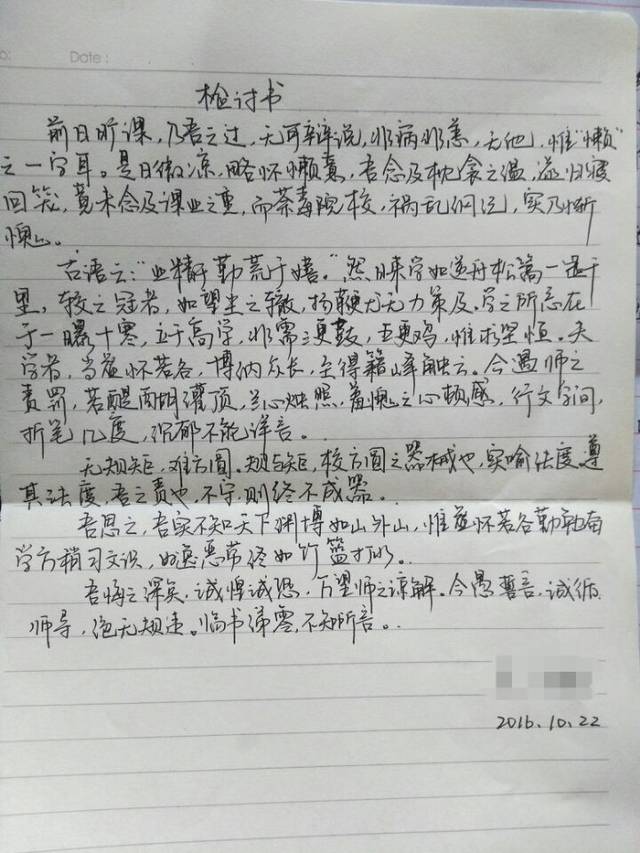 Date:
检讨书
前日旷课，乃吾之过，无可辩说，非病非恙，无他，惟“懒”
之一字耳。是日微凉，略怀懒意，吾念及枕衾之温，遂归寝
回笼，竟未念及课业之重，而荼毒院校，祸乱纲纪，实乃惭
愧。
古语云：“业精于勤荒于嬉。”然日来学如逆舟松篙一退千
里，较之冠者，如望尘之辙，扬鞭尤无力策及。学之所忌在
于一曝十寒，立于高学，非需三更鼓，五更鸡，惟求坚恒。夫
学者，当虚怀若谷，博纳众长，至得籍峰触云。今遇师之
责罚，若醍醐灌顶，兰心烛照，羞愧之心顿感，行文字间，
折笔几度，沉郁不能详言。
无规矩，难方圆。规与矩，校方圆之器械也，实喻法度，遵
其法度，吾之责也，不守，则终不成器。
吾思之，吾实不知天下渊博如山外山，惟虚怀若谷勤勉有
学方稍习文识，如愈怠常终如竹篮打水。
吾悔之深矣，诚惶诚恐，万望师之谅解。今愚誓言，诚循
师导，绝无规违。临书涕零，不知所言。
2016.10.22